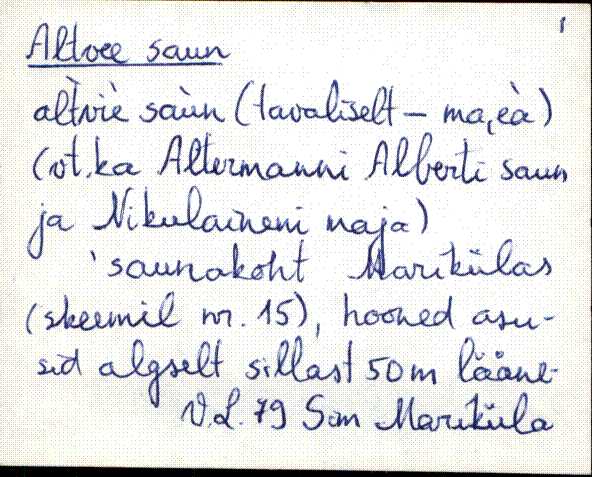 1
Altvee saun
altvìe saùn (tavaliselt – ma,eà)
(vt. ka Altermanni Alberti saun
ja Nikulaineni maja)
'saunakoht Marikülas
(skeemil nr. 15), hooned asu-
sid algselt sillast 50 m lääne-
V.L. 79 Sim Mariküla